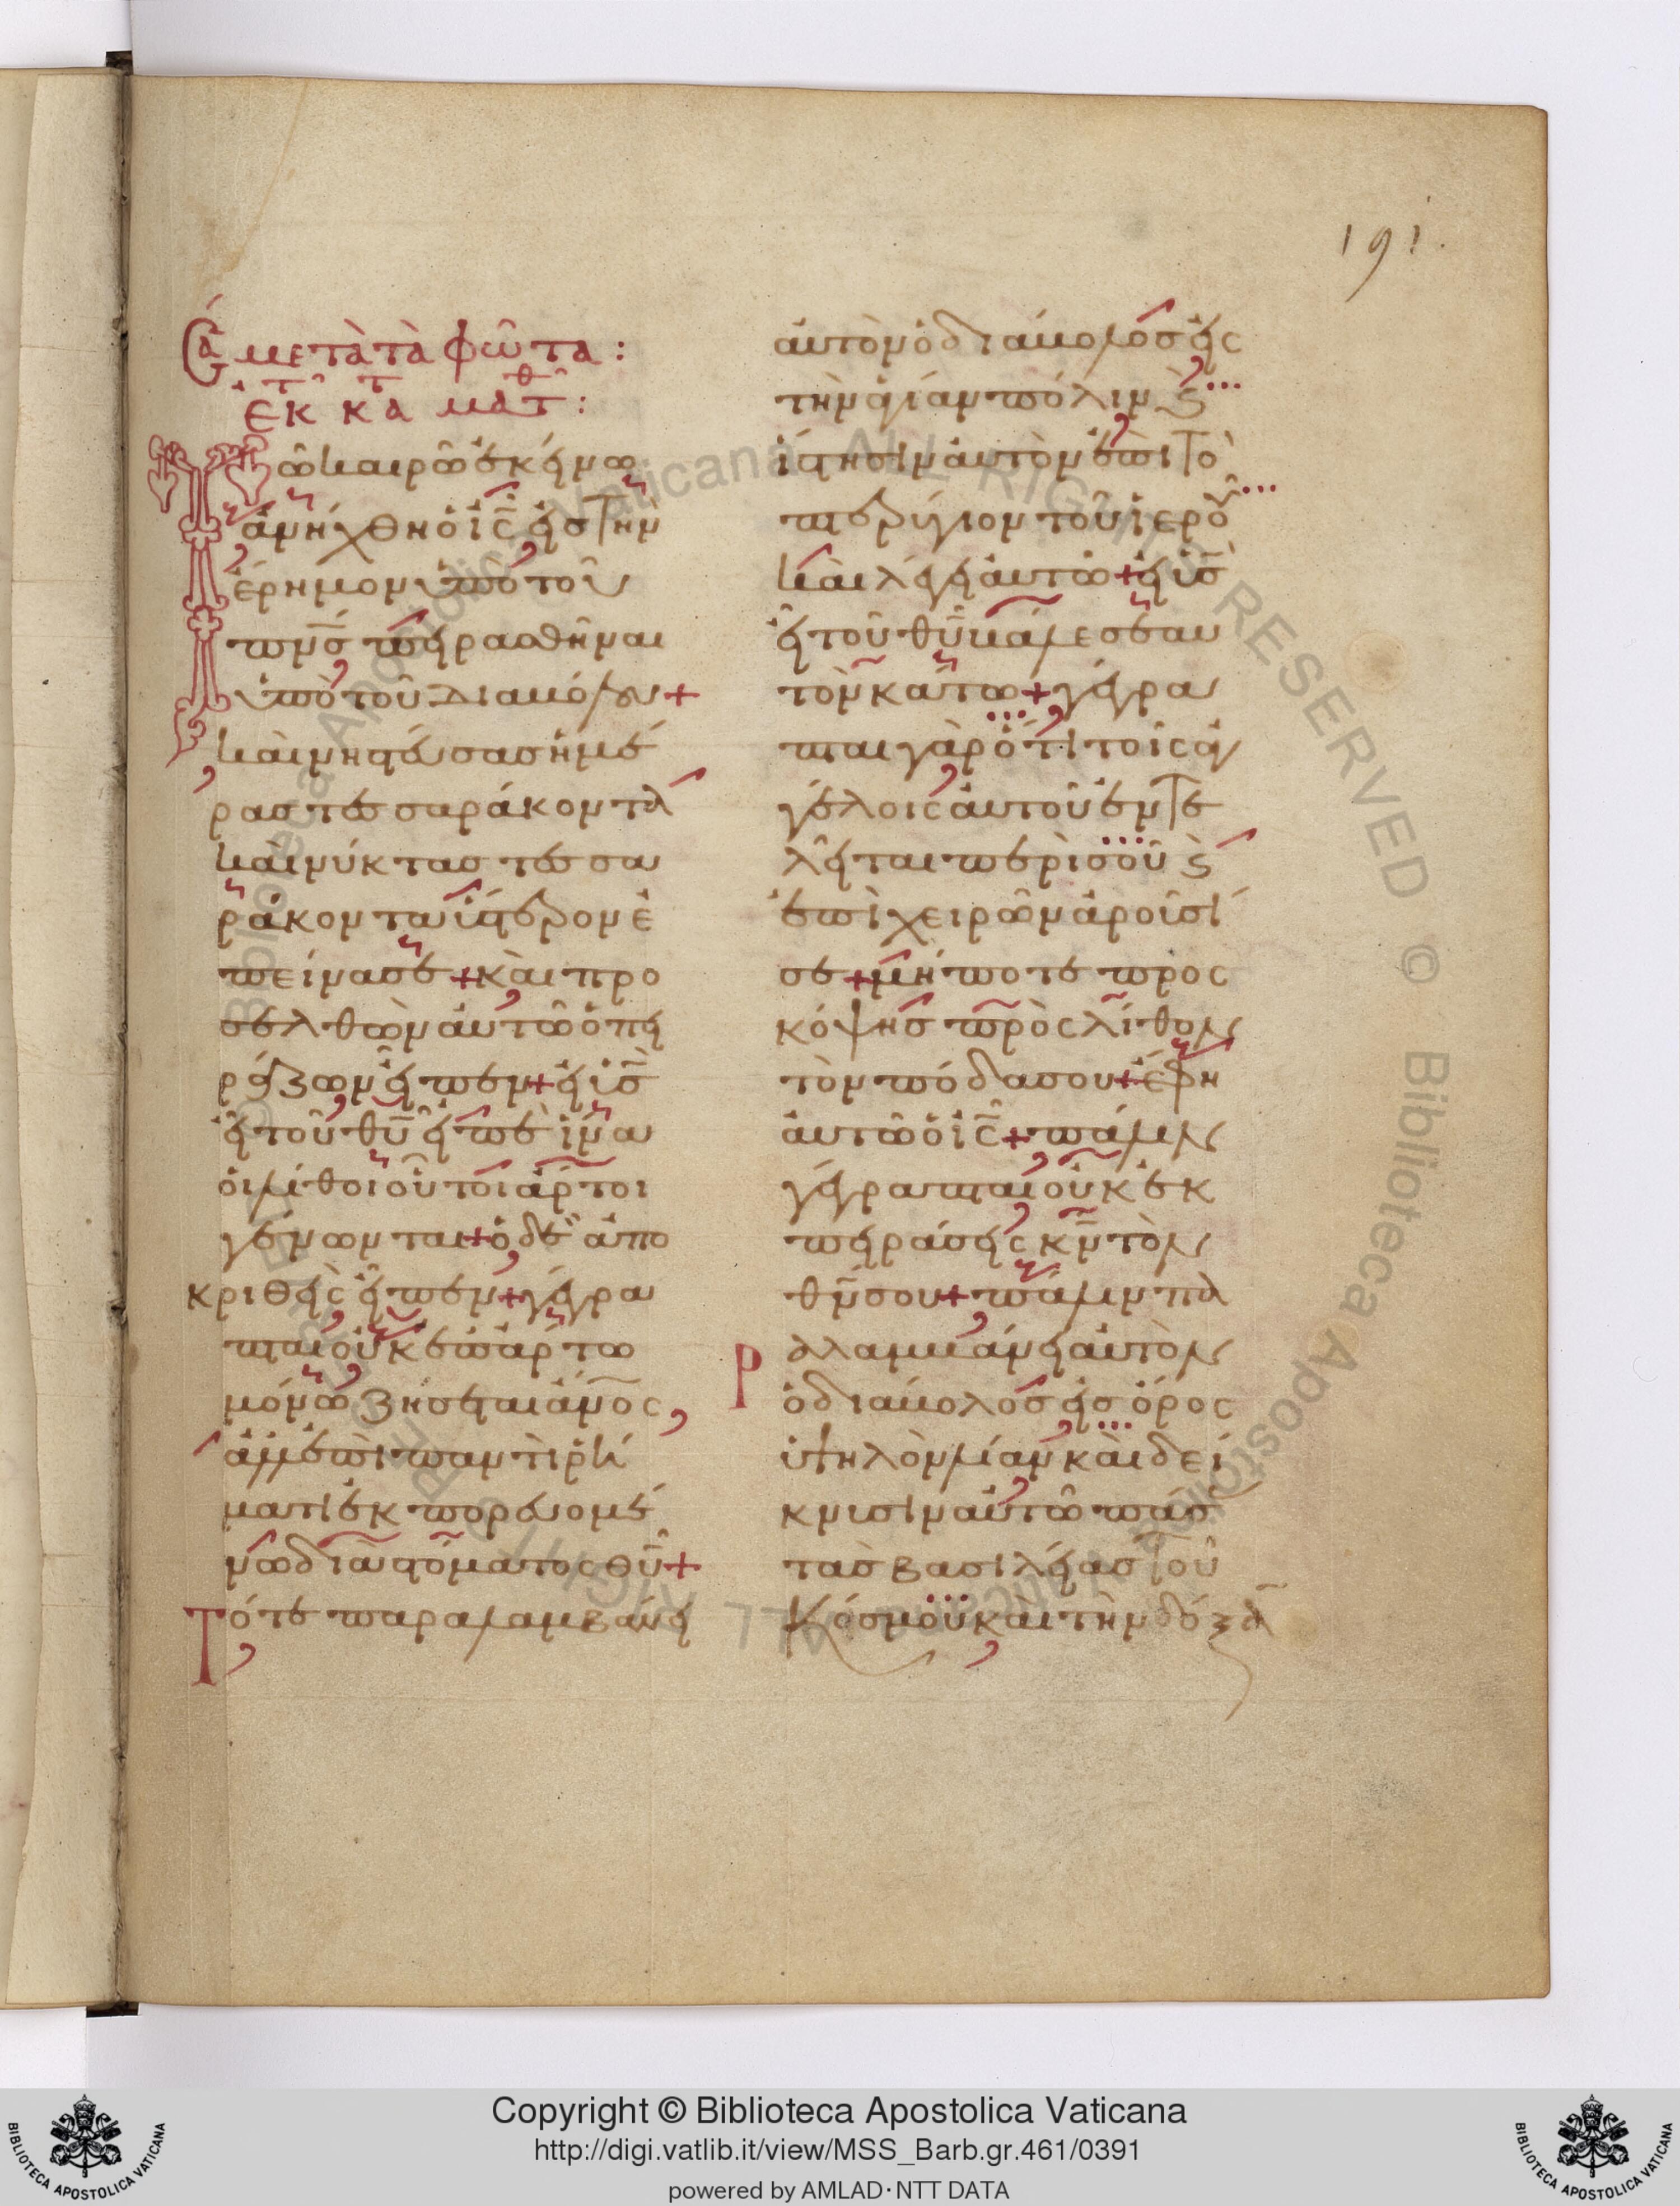 191.
Σα μετὰ τὰ φῶτα:
ἐκ τ κ τ̑ α μαθτ:
Τῶ καιρῶ ἐκείνω
ἀνήχθη ὁ ι̅ς̅ εἰς τὴν
ἔρημον ὑπὸ τοῦ
π̅ν̅ς̅ πειρασθῆναι
ὑπὸ τοῦ διαβόλου +
καὶ νηστεύσας ἡμέ
ρας τεσσαράκοντα
καὶ νύκτας τεσσα
ράκοντα ὕστερον ἐ
πείνασε + καὶ προ
σελθὼν αὐτῶ ὁ πει
ράζων εἶπεν + εἰ υ̅ς̅
εἶ τοῦ θ̅υ̅ εἰπὲ ἵνα
οἱ λίθοι οὗτοι ἄρτοι
γένωνται + ὁ δὲ ἀπο
κριθεὶς εἶπεν + γέγρα
πται οὐκ ἐπ ἄρτω
μόνω ζήσεται α̅ν̅ο̅ς̅,
ἀλλ' ἐπὶ παντὶ ῥή
ματι ἐκπορευομέ
νω διὰ στόματος θ̅υ̅ +
Τότε παραλαμβάνει
αὐτὸν ὁ διάβολος εἰς
τὴν ἁγίαν πόλιν ϗ
ἵστησιν αὐτὸν ἐπὶ τὸ
πτερύγιον τοῦ ἱεροῦ
καὶ λέγει αὐτῶ + εἰ υ̅ς̅
εἶ τοῦ θ̅υ̅ βάλε σεαυ
τὸν κάτω + γέγρα
πται γὰρ ὅτι τοῖς ἀγ
γέλοις αὐτοῦ ἐντε
λεῖται περὶ σοῦ ϗ
ἐπὶ χειρῶν ἀροῦσί
σε + μήποτε προς
κόψης πρὸς λίθον
τὸν πόδα σου + ἔφη
αὐτῶ ὁ ι̅ς̅ + πάλιν
γέγραπται οὐκ ἐκ
πειράσεις κ̅ν̅ τὸν
θ̅ν̅ σου + πάλιν πα
ραλαμβάνει αὐτὸν
ὁ διάβολος εἰς ὄρος
ὑψηλὸν λίαν καὶ δεί
κνυσιν αὐτῶ πάσ
τας βασιλείας τοῦ
κόσμου καὶ τὴν δόξα
Copyright © Biblioteca Apostolica Vaticana
http://digi.vatlib.it/view/MSS_Barb.gr.461/0391
powered by AMLAD·NTT DATA